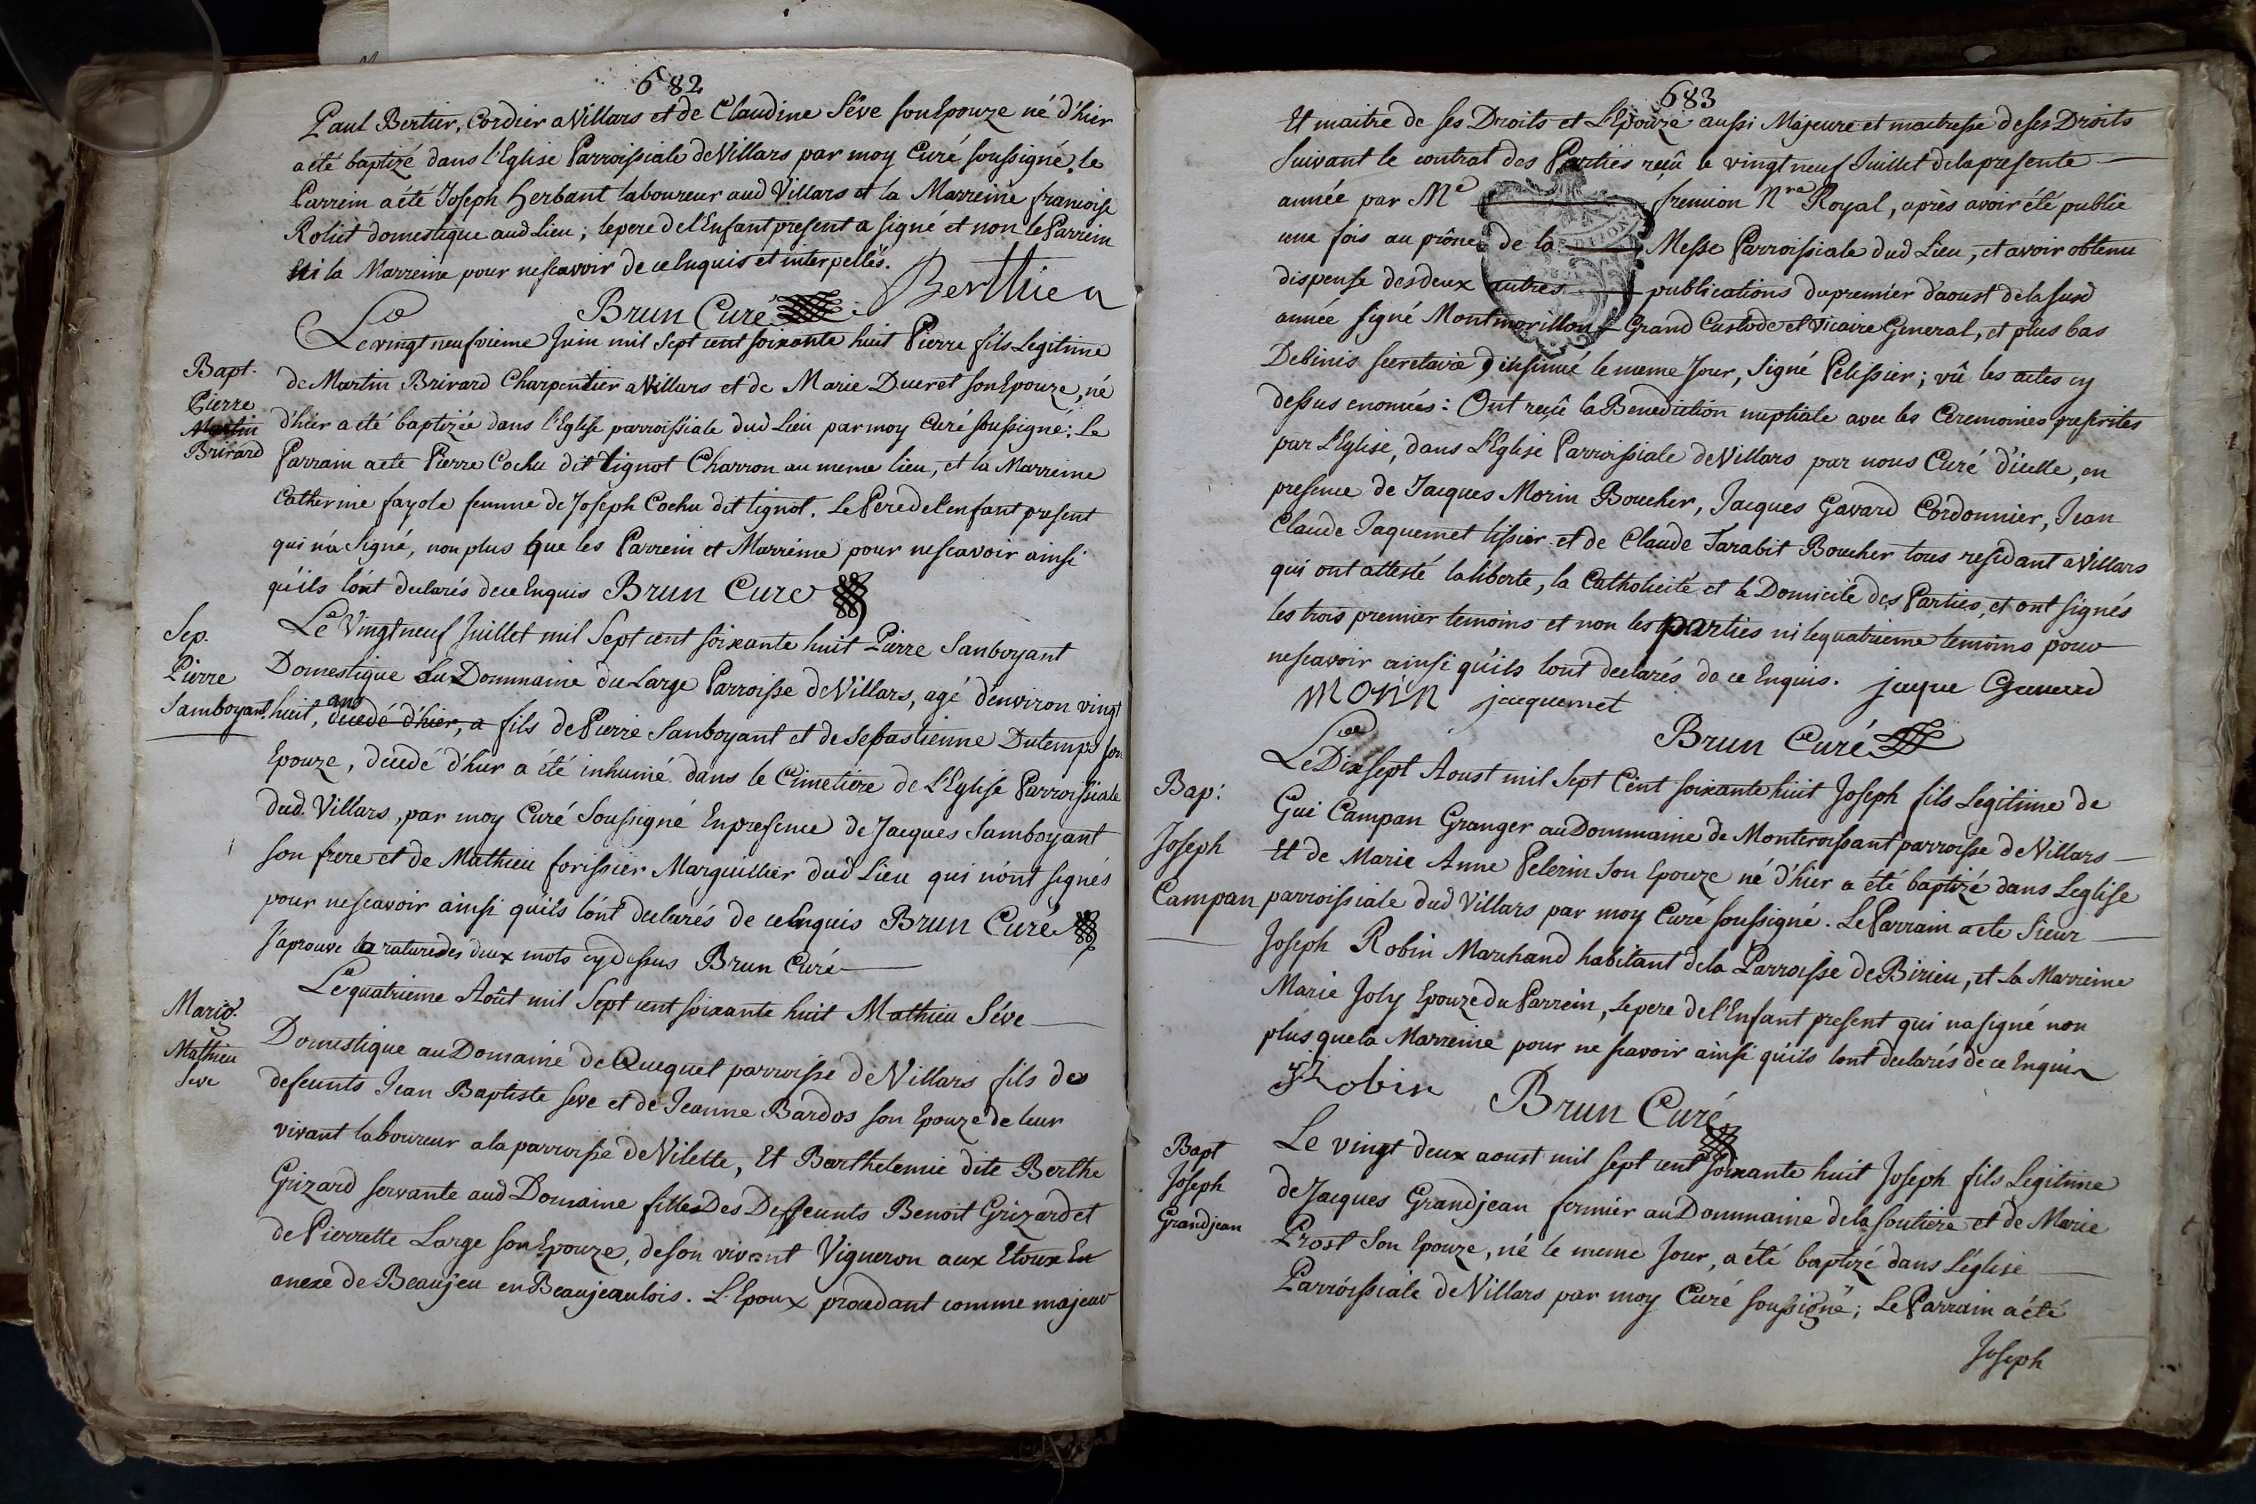 682
Paul Bertier, Cordier a Villars et de Claudine Séve son Epouze né d'hier
a été baptizé dans l'Eglise Parroissiale de Villars par moy Curé soussigné. le
Parrein a été Joseph Herbant laboureur aud Villars et la Marreine francoise
Roliet domestique aud Lieu; le pere de l'Enfant present a signé et non le Parrein
Ni la Marreine pour ne scavoir de ce Enquis et interpellés.
Berthier
Brun Curé
Le vingt neufvieme Juin mil sept cent soixante huit Pierre fils Legitime
Bapt.
Pierre
Martin
Brirard
de Martin Brirard Charpentier a Villars et de Marie Ducret son Epouze, né
d'hier a été baptizée dans l'Eglise parroissiale dud Lieu par moy Curé soussigné; Le
Parrain a ete Pierre Cochu dit Tignot Charron au meme lieu, et la Marreine
Catherine fayole femme de Joseph Cochu dit tignot. Le Pere de l'enfant present
qui n'a signé, non plus que les Parrein et Marreine pour ne scavoir ainsi
qu'ils l'ont declarés de ce Enquis Brun Curé
Sep.
Pierre
Samboyant
Le Vingt neuf Juillet mil sept cent soixante huit Pierre Sanboyant
Domestique au Dommaine du Large Parroisse de Villars, agé d'environ vingt
huit, ans decedé d'hier, a fils de Pierre Sanboyant et de Sebastienne Dutemps son
Epouze, decedé d'hier a été inhumé dans le Cimetiere de L'Eglise Parroissiale
dud. Villars, par moy Curé Soussigné En presence de Jacques Samboyant
son frere et de Mathieu forissier Marguillier dud Lieu qui n'ont signés
pour ne scavoir ainsi qu'ils l'ont declarés de ce Enquis Brun Curé
J'aprouve la rature des deux mots cy dessus Brun Curé
Marig.
Mathieu
Seve
Le quatrieme Août mil Sept cent soixante huit Mathieu Séve
Domestique au Domaine de Quequet parroisse de Villars fils de
defeunts Jean Baptiste seve et de Jeanne Bardos son Epouze de leur
vivant laboureur a la parroisse de Vilette, Et Barthelemie dite Berthe
Grizard servante aud Domaine filles Des Deffeunts Benoit Grizard et
de Pierrette Large son Epouze, de son vivant Vigneron aux Etoux En
anexe de Beaujeu en Beaujeaulois. L'Epoux procedant comme majeur
683
Et maitre de ses Droits et L'Epouze aussi Majeure et maitresse de ses Droits
suivant le contrat des Parties reçû le vingt neuf Juillet de la presente
année par Me fremion Nre Royal, après avoir été publié
une fois au prône de la Messe Parroissiale dud Lieu, et avoir obtenu
dispense des deux autres publications du premier d'aoust de la susd
année signé Montmorillon Grand Custode et Vicaire General, et plus bas
Debinis secretaire, insinué le meme Jour, signé Pelissier; vû les actes cy
dessus enoncés: Ont reçû la Benediction nuptiale avec les Ceremonies prescrites
par L'Eglise, dans L'Eglise Parroissiale de Villars par nous Curé d'icelle, en
presence de Jacques Morin Boucher, Jacques Gavard Cordonnier, Jean
Claude Jaquemet tissier et de Claude Tarabit Boucher tous residant a Villars
qui ont attesté la liberte, la Catholicité et le Domicile des Parties, et ont signés
les trois premier temoins et non les parties ni le quatrieme temoins pour
ne scavoir ainsi qu'ils l'ont declarés de ce Enquis. jaque Gavard
morin jacquemet
Brun Curé
Bap:
Joseph
Campan
Le Dix sept Aoust mil sept Cent soixante huit Joseph fils Legitime de
Gui Campan Granger au Dommaine de Monteroissant parroisse de Villars
Et de Marie Anne Pelerin Son Epouze né d'hier a été baptizé dans Leglise
parroissiale dud Villars par moy Curé soussigné. Le Parrain a ete Sieur
Joseph Robin Marchand habitant de la Parroisse de Birieu, et la Marreine
Marie Joly Epouze du Parrein, Le pere de l'Enfant present qui n'a signé non
plus que la Marreine pour ne scavoir ainsi qu'ils l'ont declarés de ce Enquis
Robin
Brun Curé
Bapt
Joseph
Grandjean
Le vingt deux aoust mil sept cent soixante huit Joseph fils Legitime
de Jacques Grandjean fermier au Dommaine de la soutiere et de Marie
Prost Son Epouze, né le meme Jour, a été baptizé dans L'église
Parroissiale de Villars par moy Curé soussigné; Le Parrain a été
Joseph